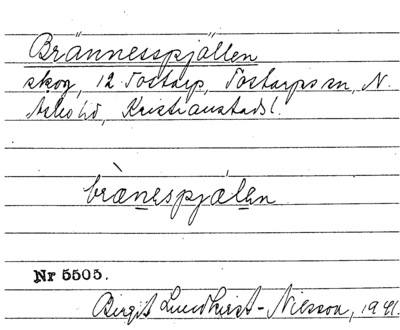 Brännesspjällen
skog, 12 Tostarp, Tostarps sn, N.
Åsbo hd, Kristianstads l.
brànespjálen
Nr 5505.
Birgit Lundkvist-Nilsson, 1941.